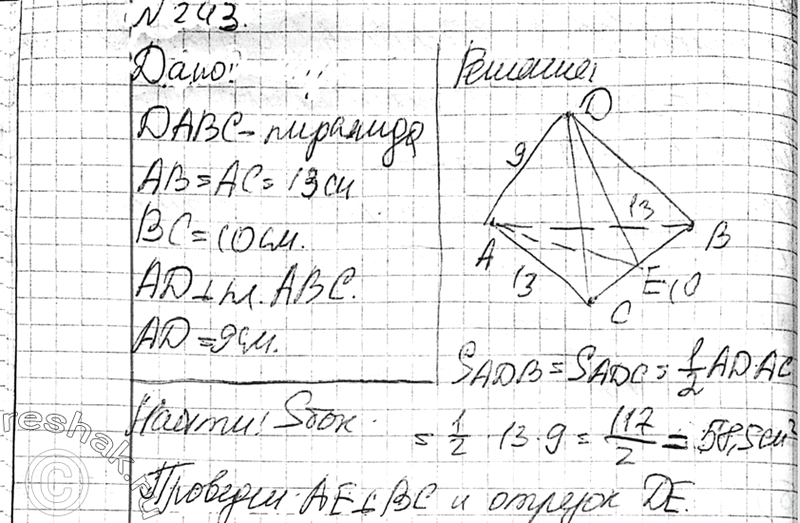 N 243.
Дано:
DABC - пирамида
AB = AC = 13 см
BC = 10 см.
AD ⊥ пл. ABC.
AD = 9 см.
Найти: Sбок.
Решение:
D
9
13
A
B
13
E
10
C
S ADB = S ADC = 1/2 AD·AC
= 1/2 · 13 · 9 = 117/2 = 58,5 см²
Проведем AE ⊥ BC и отрезок DE.
reshak.ru